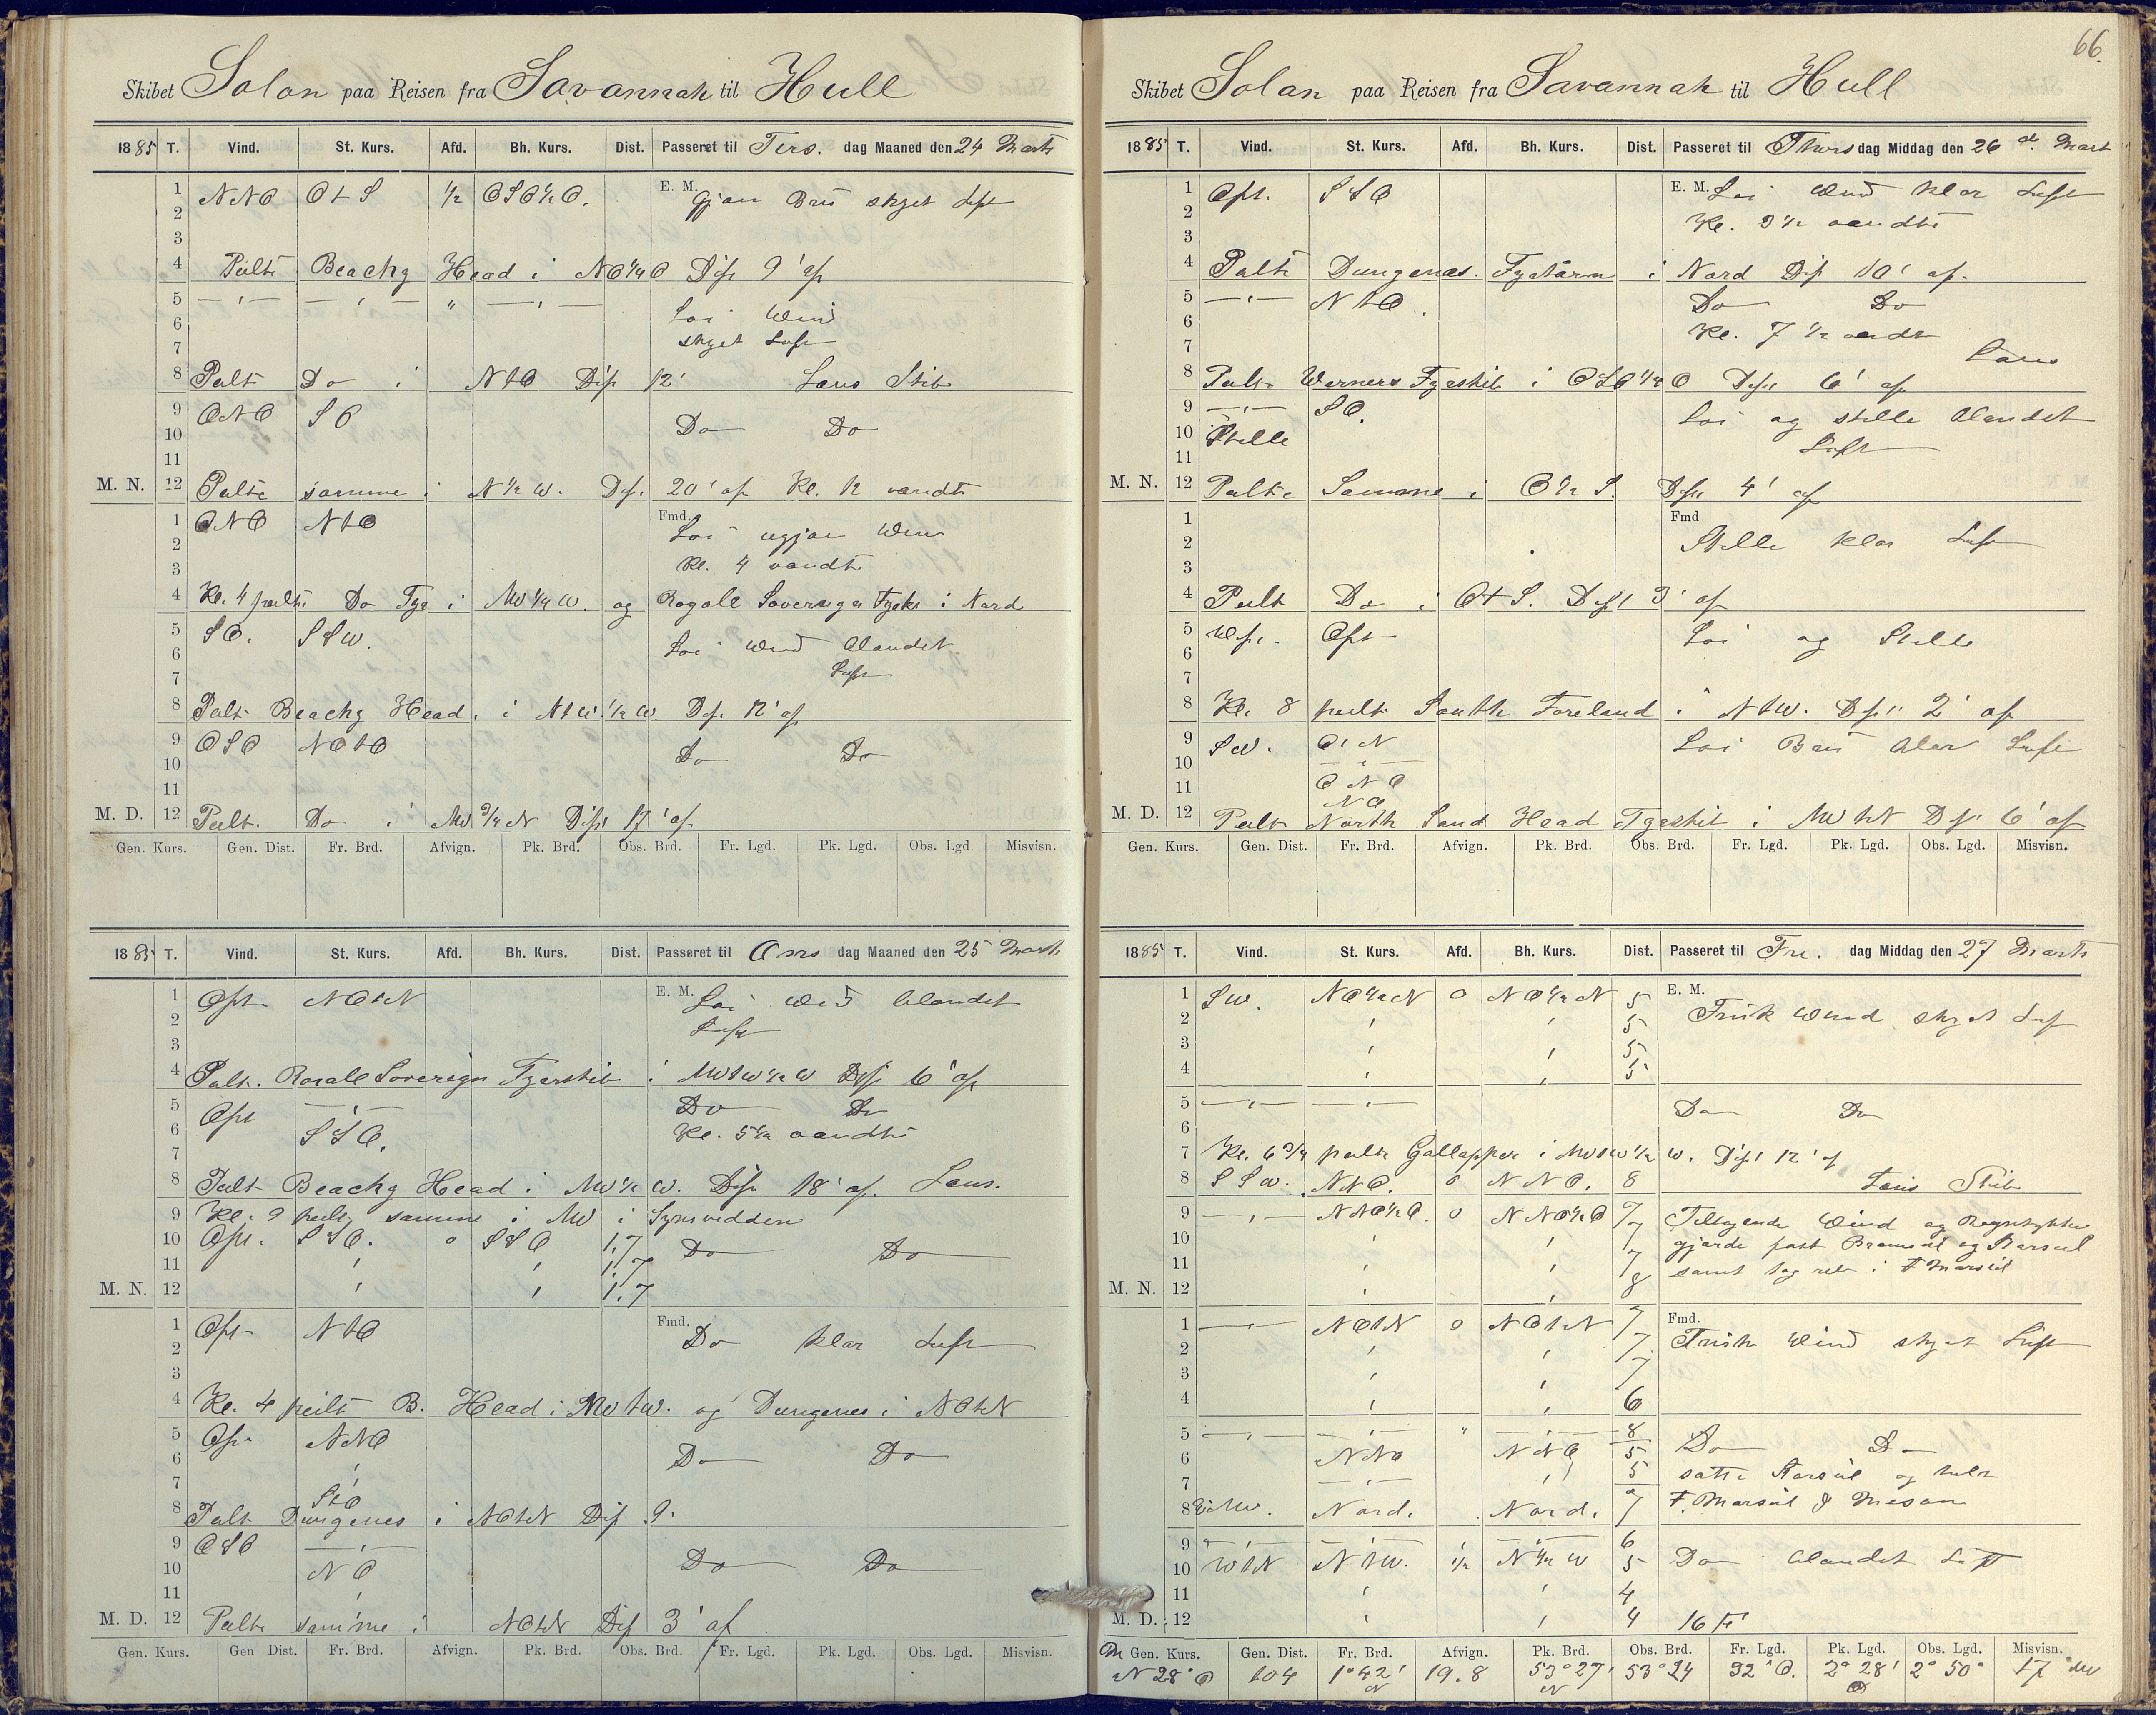 Skibet Solon paa Reisen fra Savannah til Hull
1885 T. Vind. St. Kurs. Afd. Bh. Kurs. Dist. Passeret til Tirs. dag Maaned den 24 Marts
1 NNO OtS 1/2 OSO1/2O. E. M. Gjön Bris skyet Luft
2
3
4 Peilte Beachy Head i NO1/4O Dist 9' af
5 Löi Wind
6
7 skyet Luft
8 Peilt Do i NtO Dist 12' Lens Skib
9 ONO SO
10 Do Do
11
M. N. 12 Peilte samme i N1/2W. Dist. 20' af Kl. 12 vendte
1 ONO NtO Fmd. Löi
2
3 Kl. 4 vendte
4 Kl. 4 peilte Do Fyr i NW1/4W. og Royall Soverign Fyrsk i Nord
5 SO. SSW. Löi Wind blandet
6
7 Luft
8 Peilt Beachy Head. i NtW1/2W Dist. 12' af
9 OSO NOtO
10 Do Do
11
M. D. 12 Peilt. Do i NW3/4N Dist 17' af
Gen. Kurs. Gen. Dist. Fr. Brd. Afvign. Pk. Brd. Obs. Brd. Fr. Lgd. Pk. Lgd. Obs. Lgd Misvisn.
1885 T. Vind. St. Kurs. Afd. Bh. Kurs. Dist. Passeret til Ons dag Maaned den 25 Marts
1 Ost NOtN E. M. Löi Wind blandet
2 Luft
3
4 Peilt. Royall Soverign Fyrskib i NWtW1/2W Dist 6' af
5 Ost Do Do
6 SSO. Kl. 5 1/2 vendte
7
8 Peilt Beachy Head i NW1/2W. Dist 18' af. Lens.
9 Kl. 9 peilt samme i NW i Synsvidden
10 Ost. SSO. 0 SSO 1,7 Do Do
11 1,7
M. N. 12 1,7
1 Ost NtO Fmd. Do klar Luft
2
3
4 Kl. 4 peilt B. Head i NWtW. og Dungenes i NOtN
5 Ost NNO
6 Do Do
7 StO
8 Peilt Dungenes i NOtN Dist 9.
9 OSO
10 NO Do Do
11
M. D. 12 Peilte samme i NOtN Dist 3' af
Gen. Kurs. Gen Dist. Fr. Brd. Afvign. Pk. Brd. Obs. Brd. Fr. Lgd. Pk. Lgd. Obs. Lgd. Misvisn.
66.
Skibet Solon paa Reisen fra Savannah til Hull
1885 T. Vind. St. Kurs. Afd. Bh. Kurs. Dist. Passeret til Thors dag Middag den 26 d. Mart
1 Ost. SSO E. M. Löi Wind klar Luft
2 Kl. 3 1/2 vendte
3
4 Peilte Dungenes. Fyrtårn i Nord Dist 10' af.
5 NtO. Do Do
6 Kl. 7 1/2 vendt
7 Lens
8 Peilte Werners Fyrskib i OSO1/4O Dist 6' af
9 SO. Löi og stille blandet
10 Stille Luft
11
M. N. 12 Peilte Samme i O1/2S. Dist 4' af
1 Fmd
2 Stille klar Luft
3
4 Peilt Do i OtS. Dist 3' af
5 West. Ost Löi og Stille
6
7
8 Kl. 8 peilt South Foreland i NtW. Dist 2' af
9 SW. OtN Löi Bris klar Luft
10
11 ONO
NO
M. D. 12 Peilt North Sand Head Fyrskib i NWtN Dist 6' af
Gen. Kurs. Gen. Dist. Fr. Brd. Afvign. Pk. Brd. Obs. Brd. Fr. Lgd. Pk. Lgd. Obs. Lgd. Misvisn.
1885 T. Vind. St. Kurs. Afd. Bh. Kurs. Dist. Passeret til Fre. dag Middag den 27 Marts
1 SW. NO1/2N 0 NO1/2N 5 E. M.
2 5 Frisk Wind skyet Luft
3 5
4 5
5 Do Do
6
7 Kl. 6 3/4 peilte Gallapper i NWtW1/2W. Dist 12' af
8 SSW. NNO. 0 NNO. 8 Lens Skib
9 NNO1/2O. 0 NNO1/2O 7 Tiltagende Wind og Regntykke
10 7 gjorde fast Bramseil og Storseil
11 7 samt tog reb i F Marsseil
M. N. 12 8
1 NOtN 0 NOtN 7 Fmd.
2 7 Frisk Wind skyet Luft
3 7
4 6
5 8 Do Do
6 NNO NNO 5
7 5 satte Storseil og hele
8 NW. Nord. Nord. 7 F. Marseil & Mesan
9 6
10 WtN NtW. 1/2 N1/2W 5 Do blandet Luft
11 4
M. D. 12 4 16 F
Gen. Kurs. Gen. Dist. Fr. Brd. Afvign. Pk. Brd. Obs. Brd. Fr. Lgd. Pk. Lgd. Obs. Lgd. Misvisn.
N28°O 104 1°42' N 19.8 53°27' N 53°24 32'O. 2°28' O 2°50' 17° NW